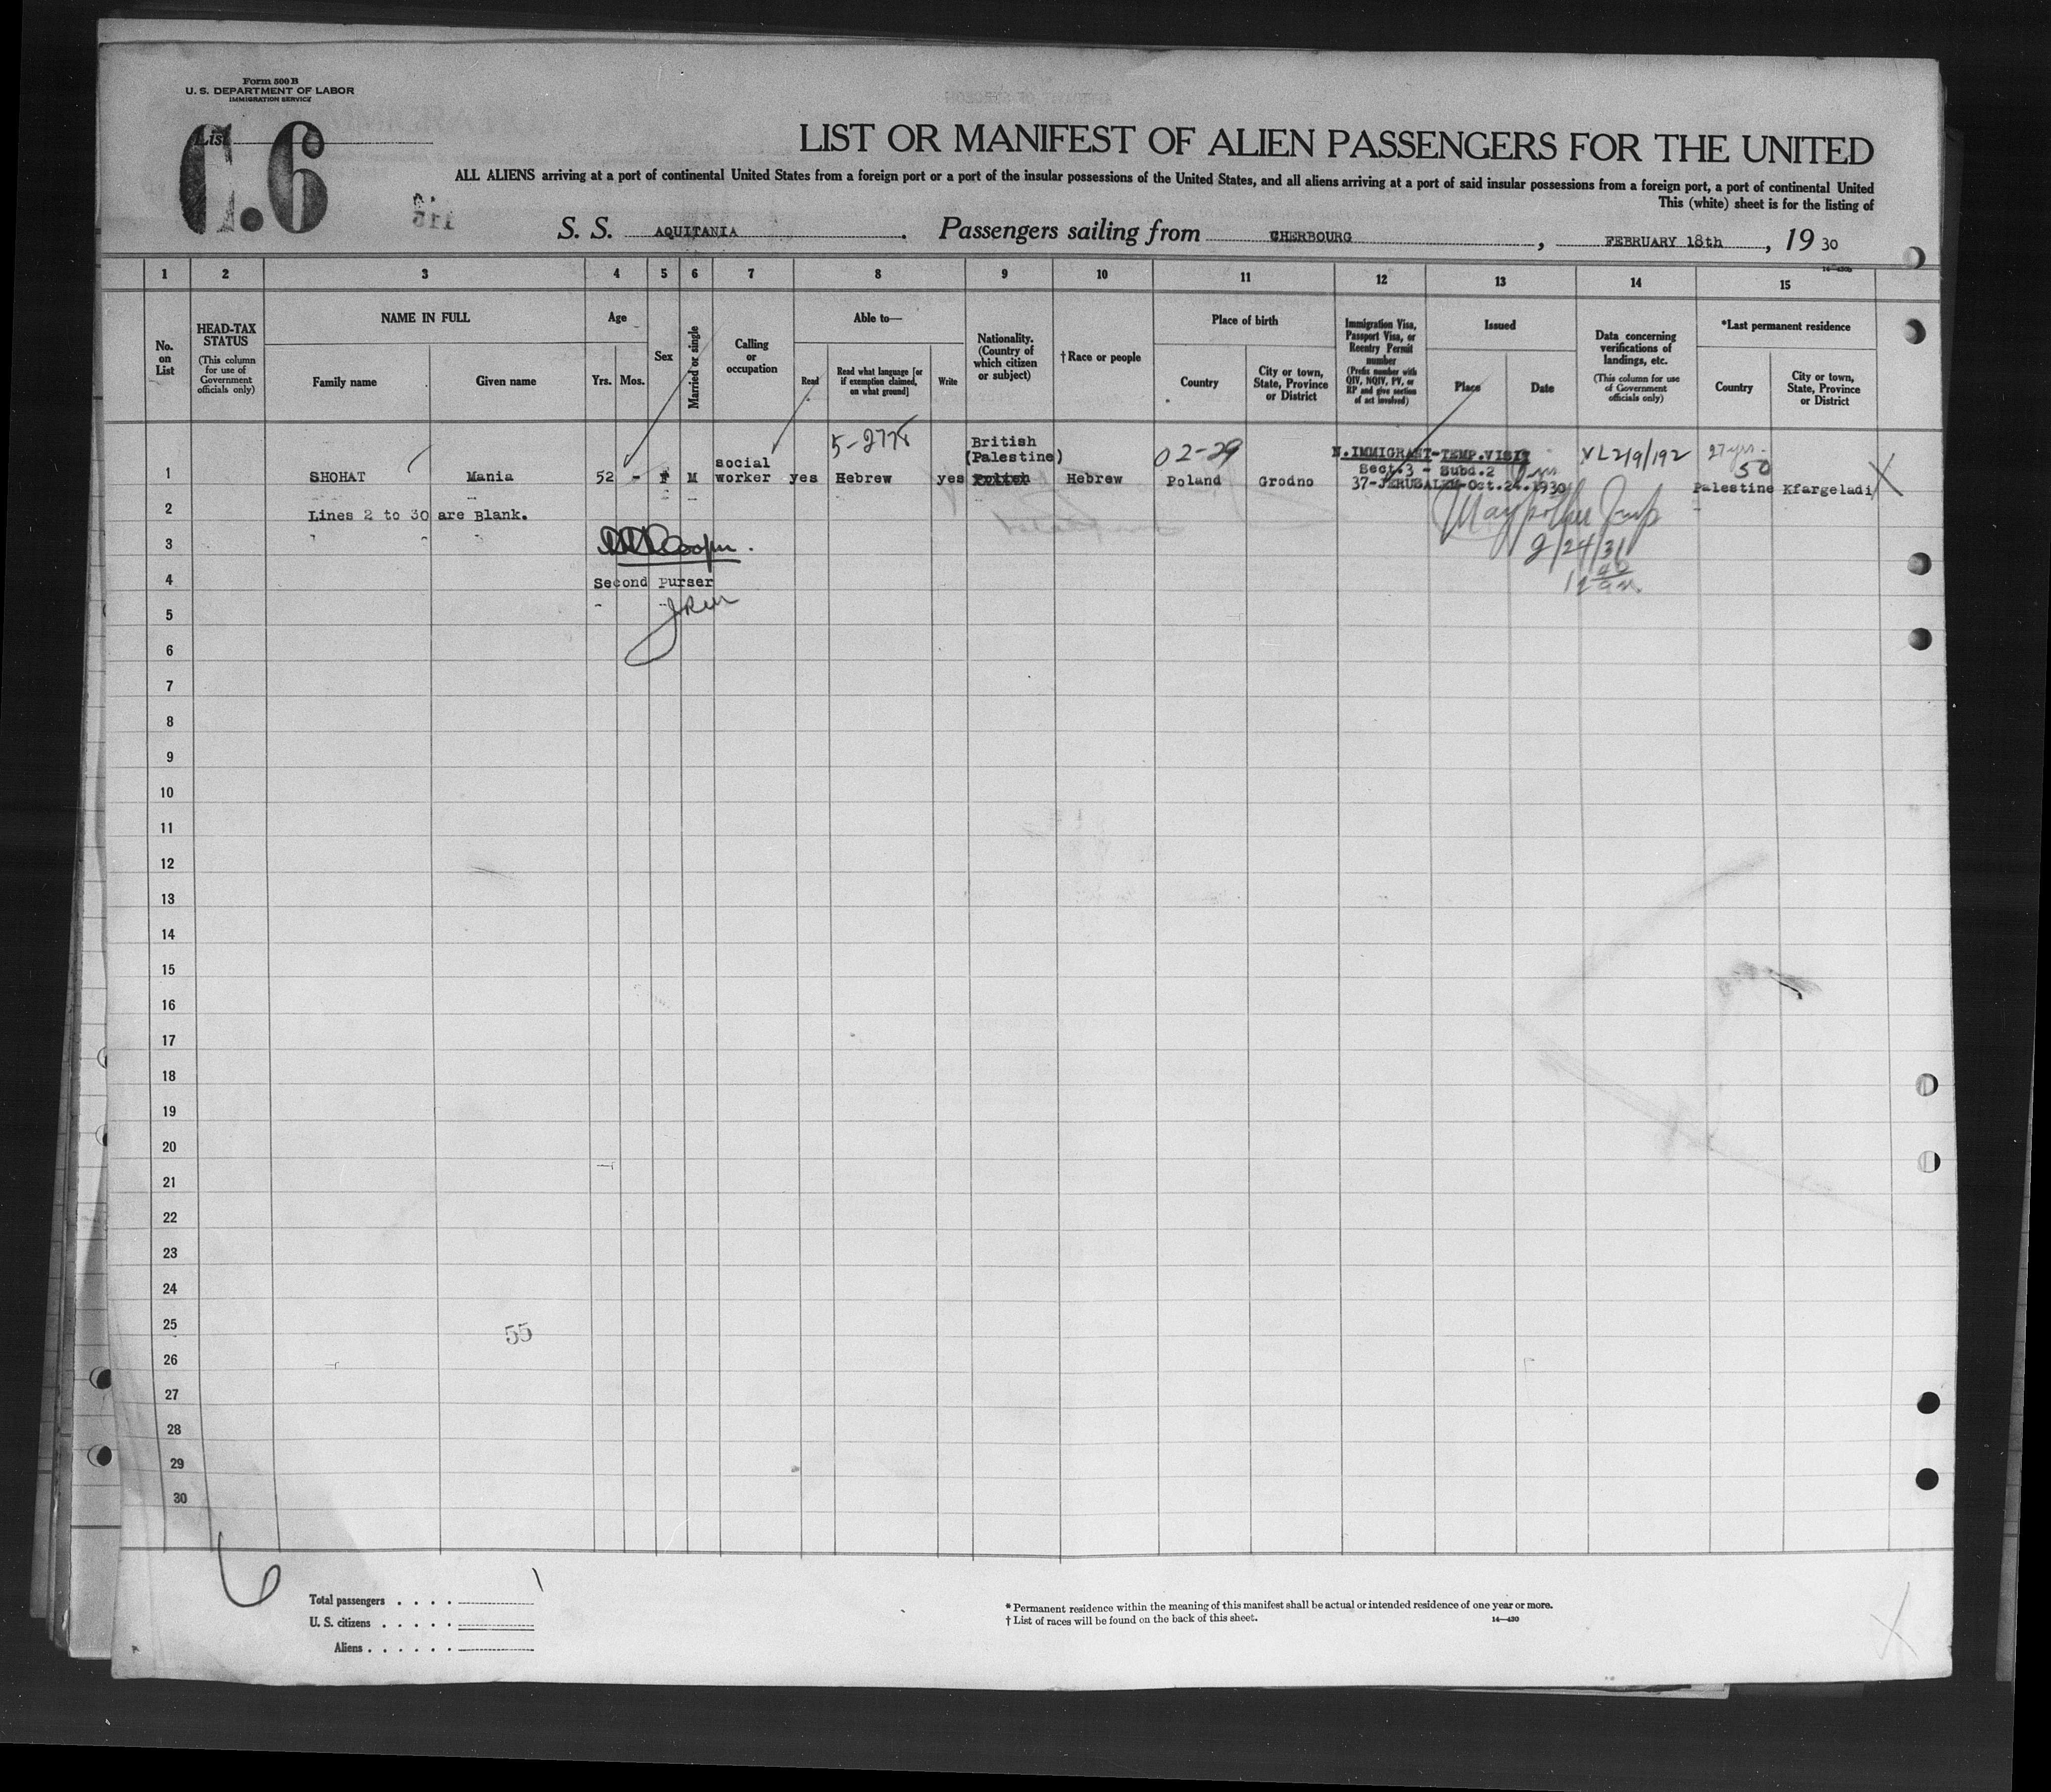 Form 500 B
U. S. DEPARTMENT OF LABOR
IMMIGRATION SERVICE
List
C.6
115
LIST OR MANIFEST OF ALIEN PASSENGERS FOR THE UNITED
ALL ALIENS arriving at a port of continental United States from a foreign port or a port of the insular possessions of the United States, and all aliens arriving at a port of said insular possessions from a foreign port, a port of continental United
This (white) sheet is for the listing of
S. S. AQUITANIA. Passengers sailing from CHERBOURG, FEBRUARY 18th, 19 30
1 2 3 4 5 6 7 8 9 10 11 12 13 14 15
No. on List
HEAD-TAX STATUS
(This column for use of Government officials only)
NAME IN FULL
Family name
Given name
Age
Yrs. Mos.
Sex
Married or single
Calling or occupation
Able to—
Read
Read what language [or if exemption claimed, on what ground]
Write
Nationality. (Country of which citizen or subject)
†Race or people
Place of birth
Country
City or town, State, Province or District
Immigration Visa, Passport Visa, or Reentry Permit number
(Prefix number with QIV, NQIV, PV, or RP and give section of act involved)
Issued
Place
Date
Data concerning verifications of landings, etc.
(This column for use of Government officials only)
*Last permanent residence
Country
City or town, State, Province or District
5-2778
British
(Palestine)
02-29
N.IMMIGRANT-TEMP.VISIT
VL2/9/192
27 yrs.
50
social
Sect.3 - Subd.2
1 SHOHAT Mania 52 - F M worker yes Hebrew yes Polish Hebrew Poland Grodno 37-JERUSALEM-Oct.24.1930
Palestine Kfargeladi
2
Lines 2 to 30 are Blank.
3
Cooper.
2/24/31
4
Second Purser
5
6
7
8
9
10
11
12
13
14
15
16
17
18
19
20
21
22
23
24
25
55
26
27
28
29
30
6
Total passengers . . . . 1
U. S. citizens . . . . .
Aliens . . . . . .
* Permanent residence within the meaning of this manifest shall be actual or intended residence of one year or more.
† List of races will be found on the back of this sheet.
14—430